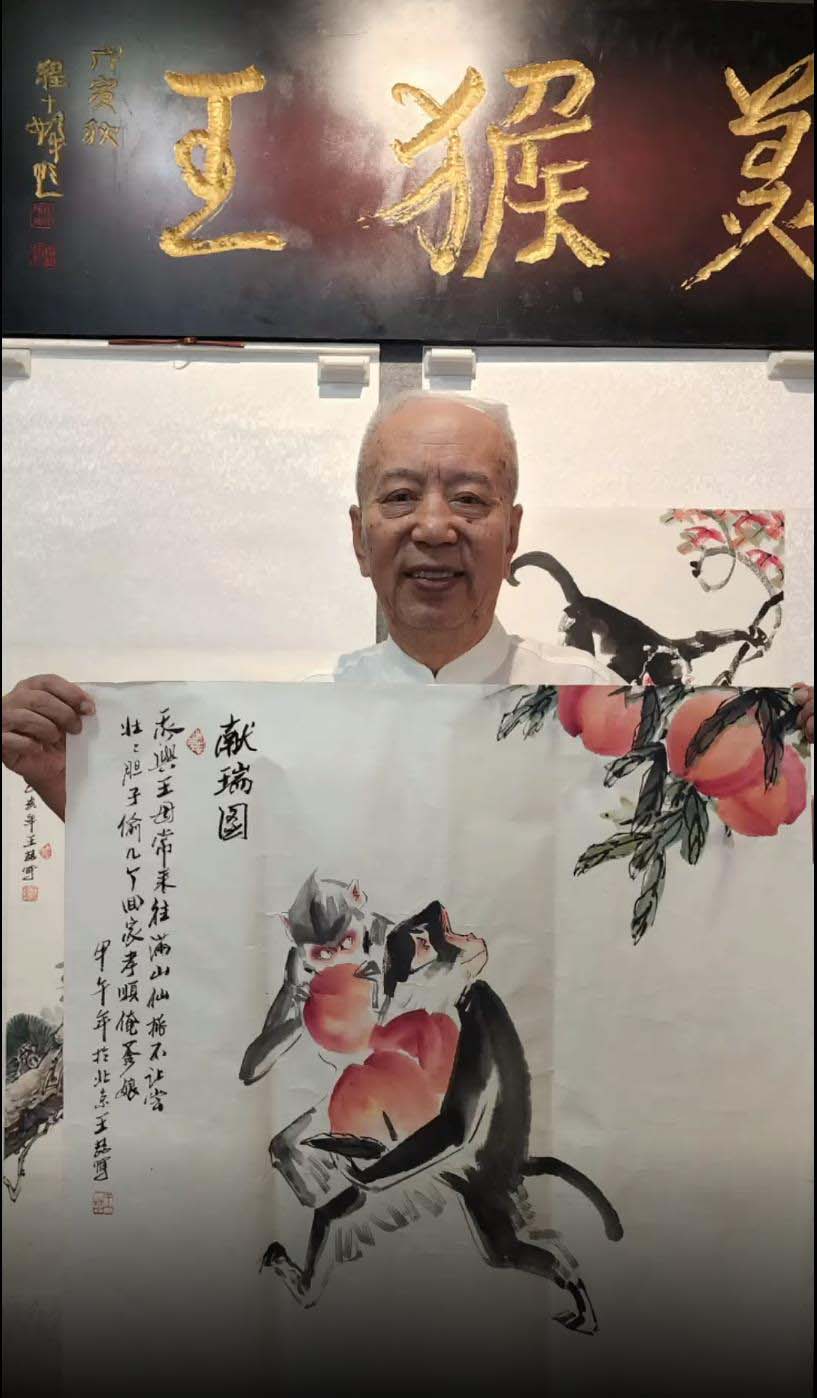 美猴王
戊寅秋
程十髮题
献瑞图
我與王母常来往满山仙桃不让尝
壮〻胆子偷几个回家孝顺俺爹娘
甲午年於北京王写
亥年王写